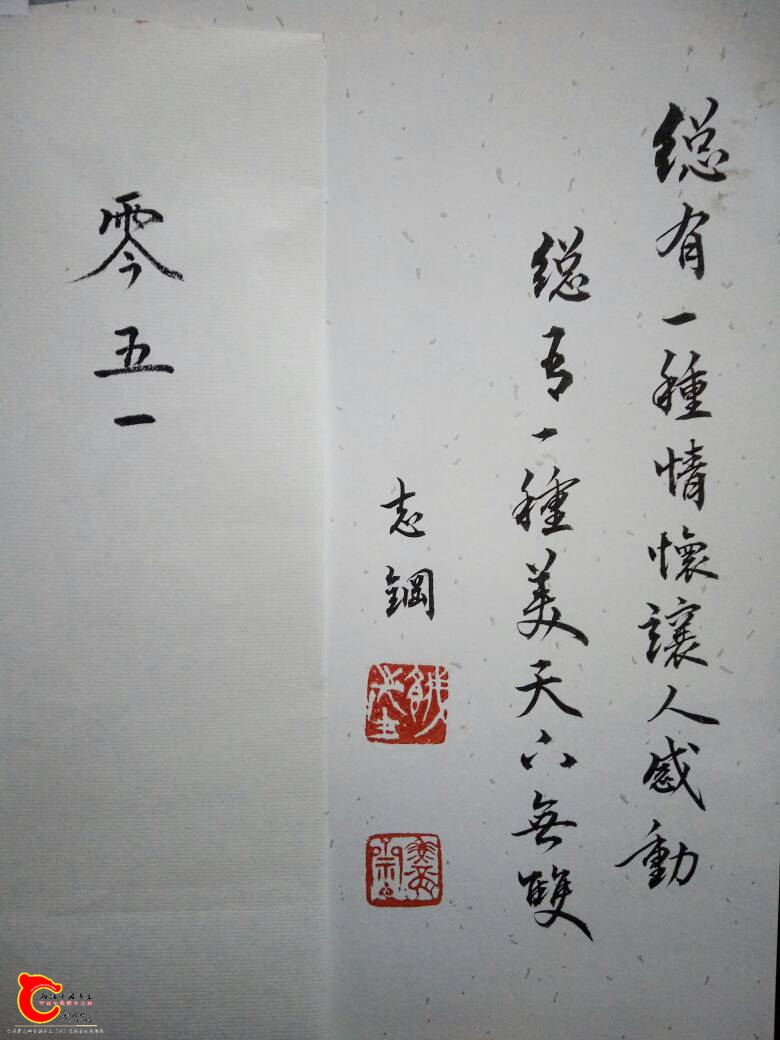 総有一種情懷讓人感動
総有一種美天下無雙
志鋼
零五一